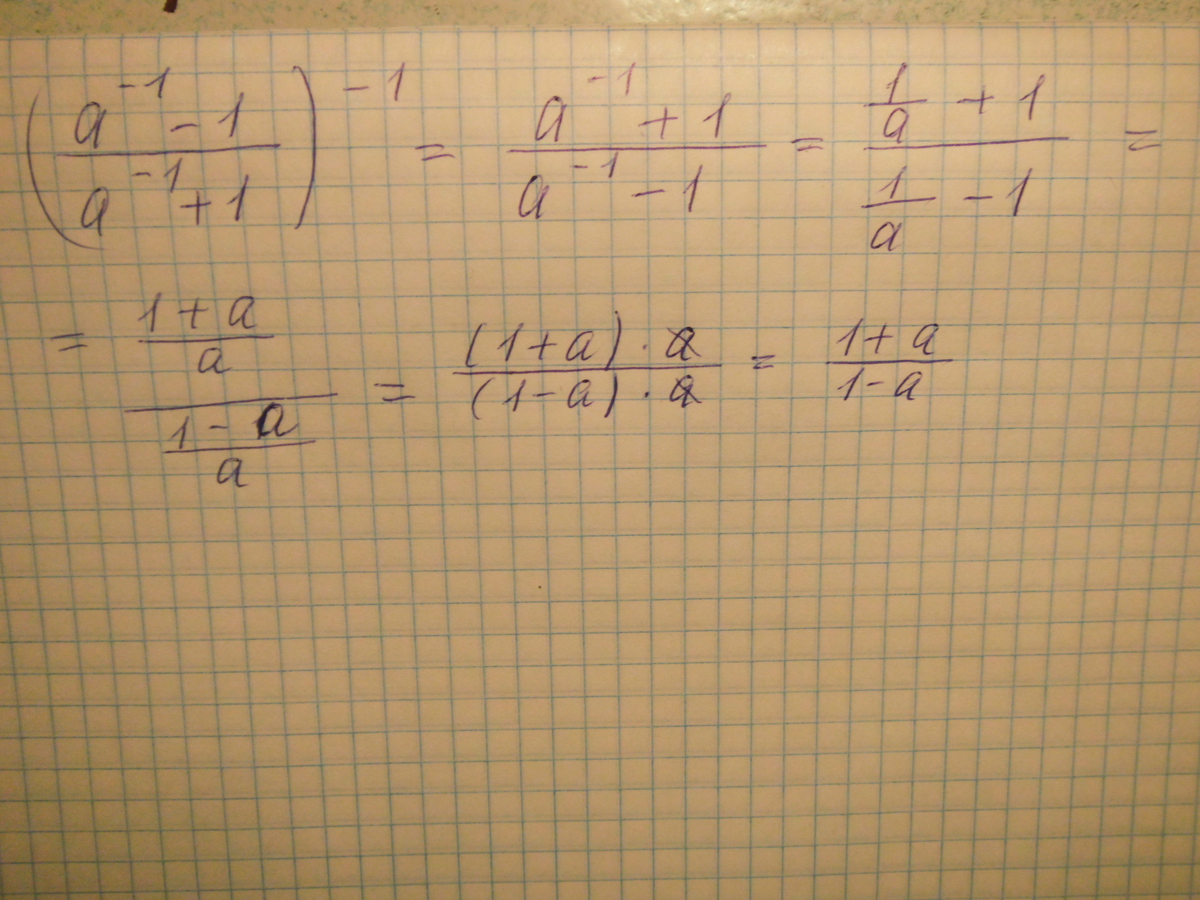 (\frac{a^{-1} - 1}{a^{-1} + 1})^{-1} = \frac{a^{-1} + 1}{a^{-1} - 1} = \frac{\frac{1}{a} + 1}{\frac{1}{a} - 1} =
= \frac{\frac{1 + a}{a}}{\frac{1 - a}{a}} = \frac{(1 + a) \cdot a}{(1 - a) \cdot a} = \frac{1 + a}{1 - a}